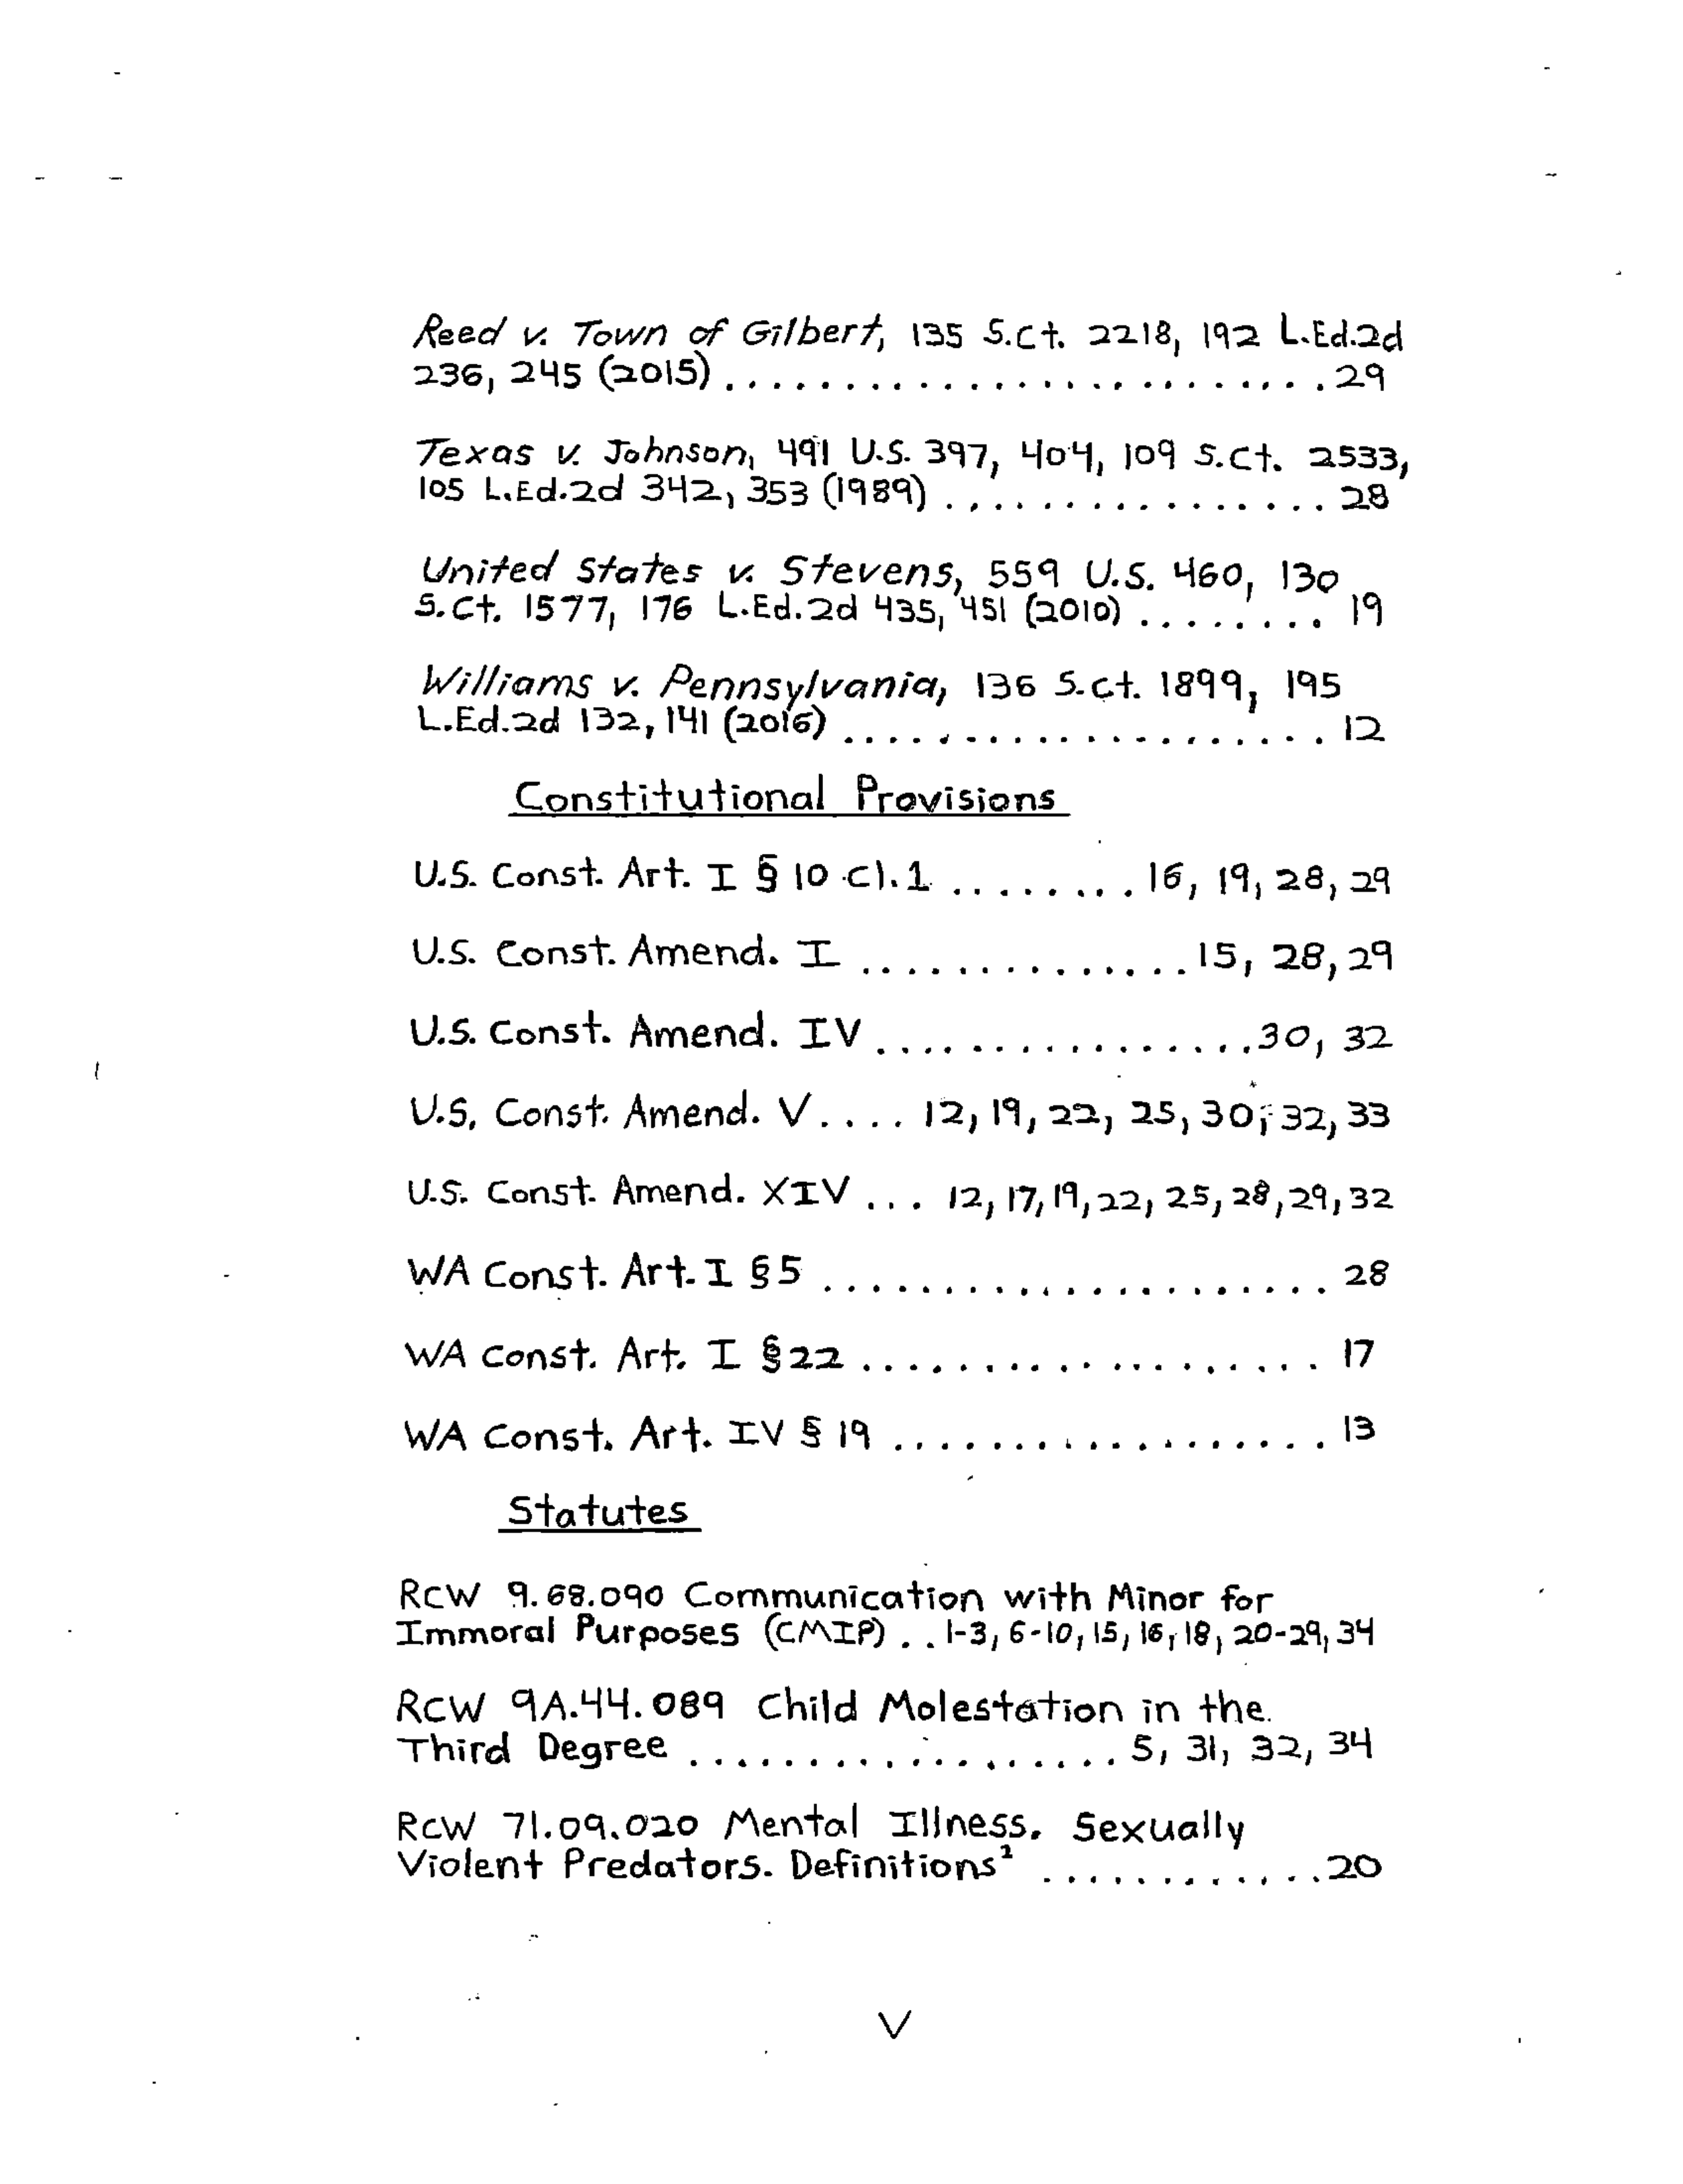 Reed v. Town of Gilbert, 135 S.Ct. 2218, 192 L.Ed.2d
236, 245 (2015) ......................... 29
Texas v. Johnson, 491 U.S. 397, 404, 109 S.Ct. 2533,
105 L.Ed.2d 342, 353 (1989) ................ 28
United States v. Stevens, 559 U.S. 460, 130
S.Ct. 1577, 176 L.Ed.2d 435, 451 (2010) ........ 19
Williams v. Pennsylvania, 136 S.Ct. 1899, 195
L.Ed.2d 132, 141 (2016) .................... 12
Constitutional Provisions
U.S. Const. Art. I § 10 cl.1 ........ 16, 19, 28, 29
U.S. Const. Amend. I .............. 15, 28, 29
U.S. Const. Amend. IV ................ 30, 32
U.S. Const. Amend. V .... 12, 19, 22, 25, 30, 32, 33
U.S. Const. Amend. XIV ... 12, 17, 19, 22, 25, 28, 29, 32
WA Const. Art. I §5 ..................... 28
WA Const. Art. I §22 ................... 17
WA Const. Art. IV § 19 .................. 13
Statutes
RCW 9.68.090 Communication with Minor for
Immoral Purposes (CMIP) .. 1-3, 6-10, 15, 16, 18, 20-29, 34
RCW 9A.44.089 Child Molestation in the
Third Degree .................. 5, 31, 32, 34
RCW 71.09.020 Mental Illness. Sexually
Violent Predators. Definitions² ............ 20
V